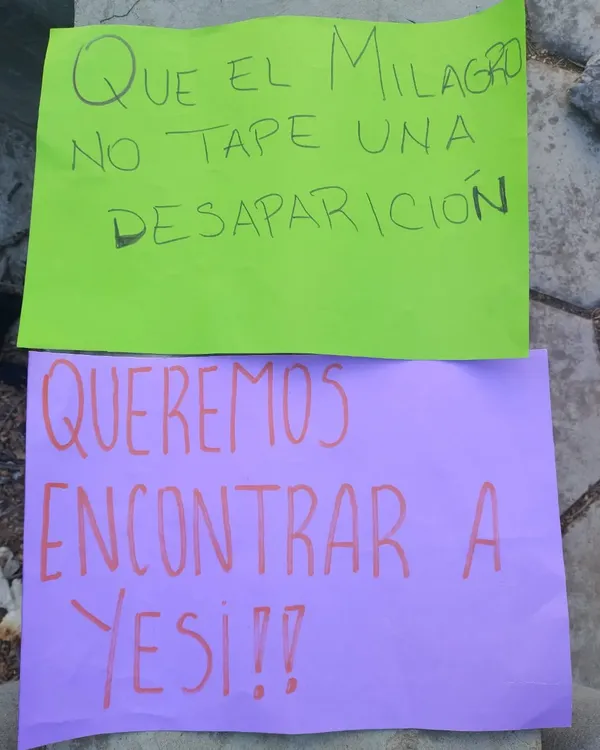 QUE EL MILAGRO
NO TAPE UNA
DESAPARICIÓN
QUEREMOS
ENCONTRAR A
YESi!!